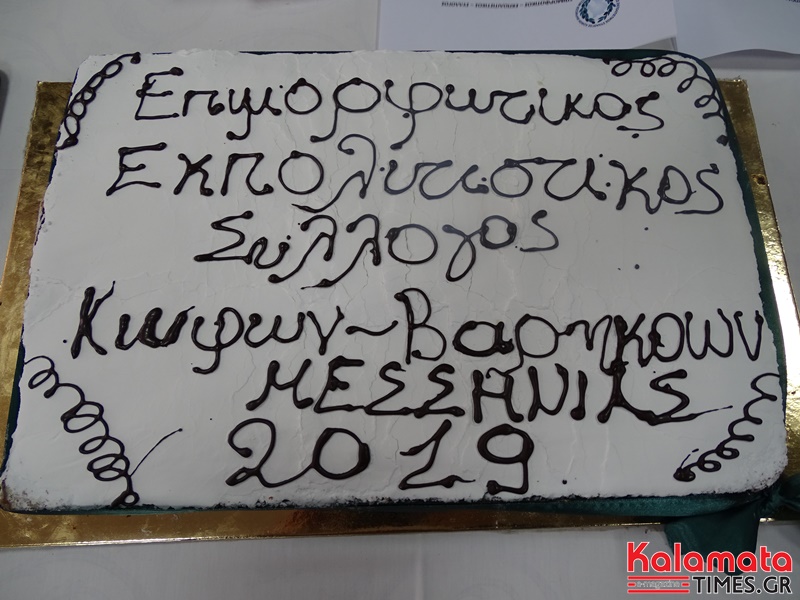 Επιμορφωτικος
Εκπολιτιστικος
Συλλογος
Κωφων~Βαρηκοων
ΜΕΣΣΗΝΙΑΣ
2019
Kalamata
e-magazine
TIMES.GR